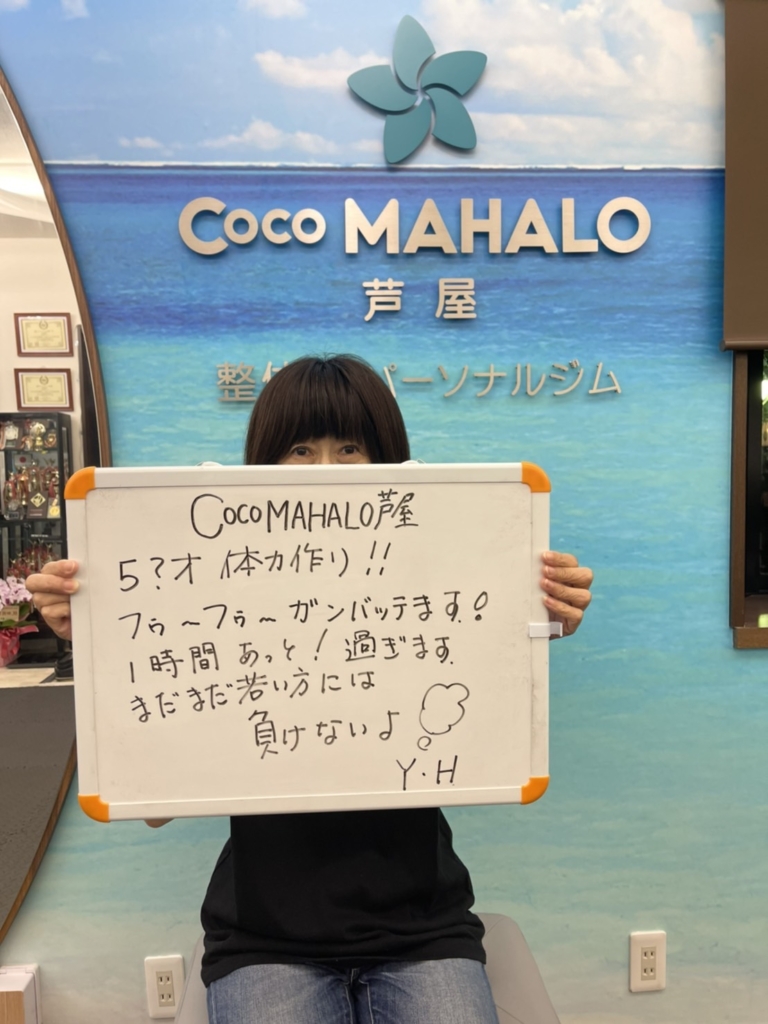 Coco MAHALO
芦屋
整体 パーソナルジム
CocoMAHALO芦屋
5?才 体力作り!!
フゥ〜フゥ〜 ガンバッテます!
1時間 あっと! 過ぎます
まだまだ若い方には
負けないよ
Y・H